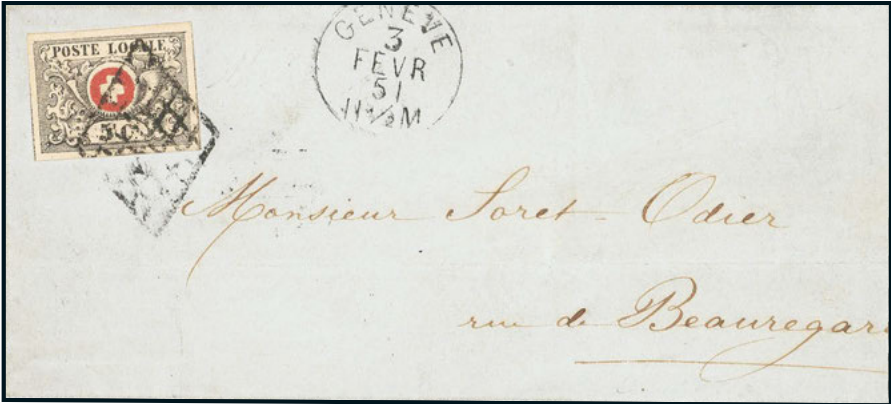 POSTE LOCALE
5 Cs
GENEVE
3
FEVR
51
11½M
Monsieur Soret-Odier
rue de Beauregar